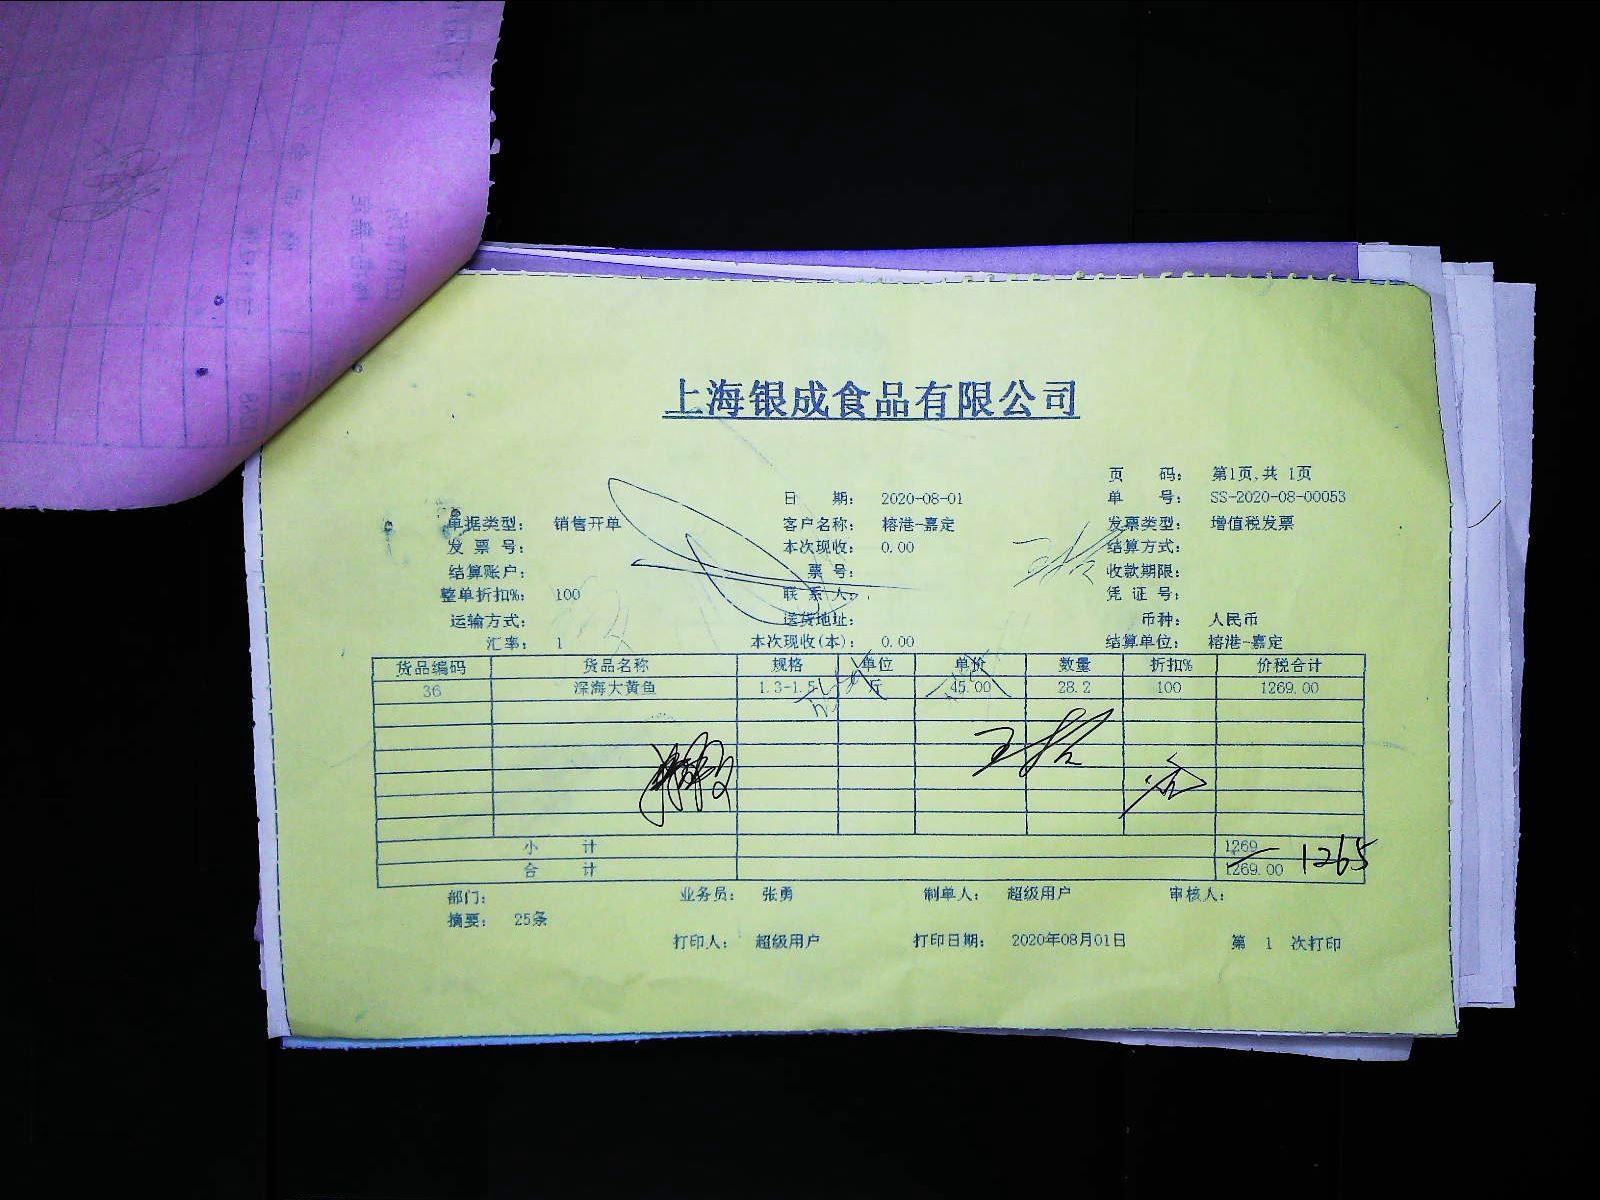 上海银成食品有限公司
页 码: 第1页,共 1页
日 期: 2020-08-01 单 号: SS-2020-08-00053
单据类型: 销售开单 客户名称: 榕港-嘉定 发票类型: 增值税发票
发 票 号: 本次现收: 0.00 结算方式:
结算账户: 票 号: 收款期限:
整单折扣%: 100 联 系 人: 凭 证 号:
运输方式: 送货地址: 币种: 人民币
汇率: 1 本次现收(本): 0.00 结算单位: 榕港-嘉定
货品编码 货品名称 规格 单位 单价 数量 折扣% 价税合计
36 深海大黄鱼 1.3-1.5 斤 45.00 28.2 100 1269.00
小 计 1269
合 计 1269.00 1265
部门: 业务员: 张勇 制单人: 超级用户 审核人:
摘要: 25条
打印人: 超级用户 打印日期: 2020年08月01日 第 1 次打印